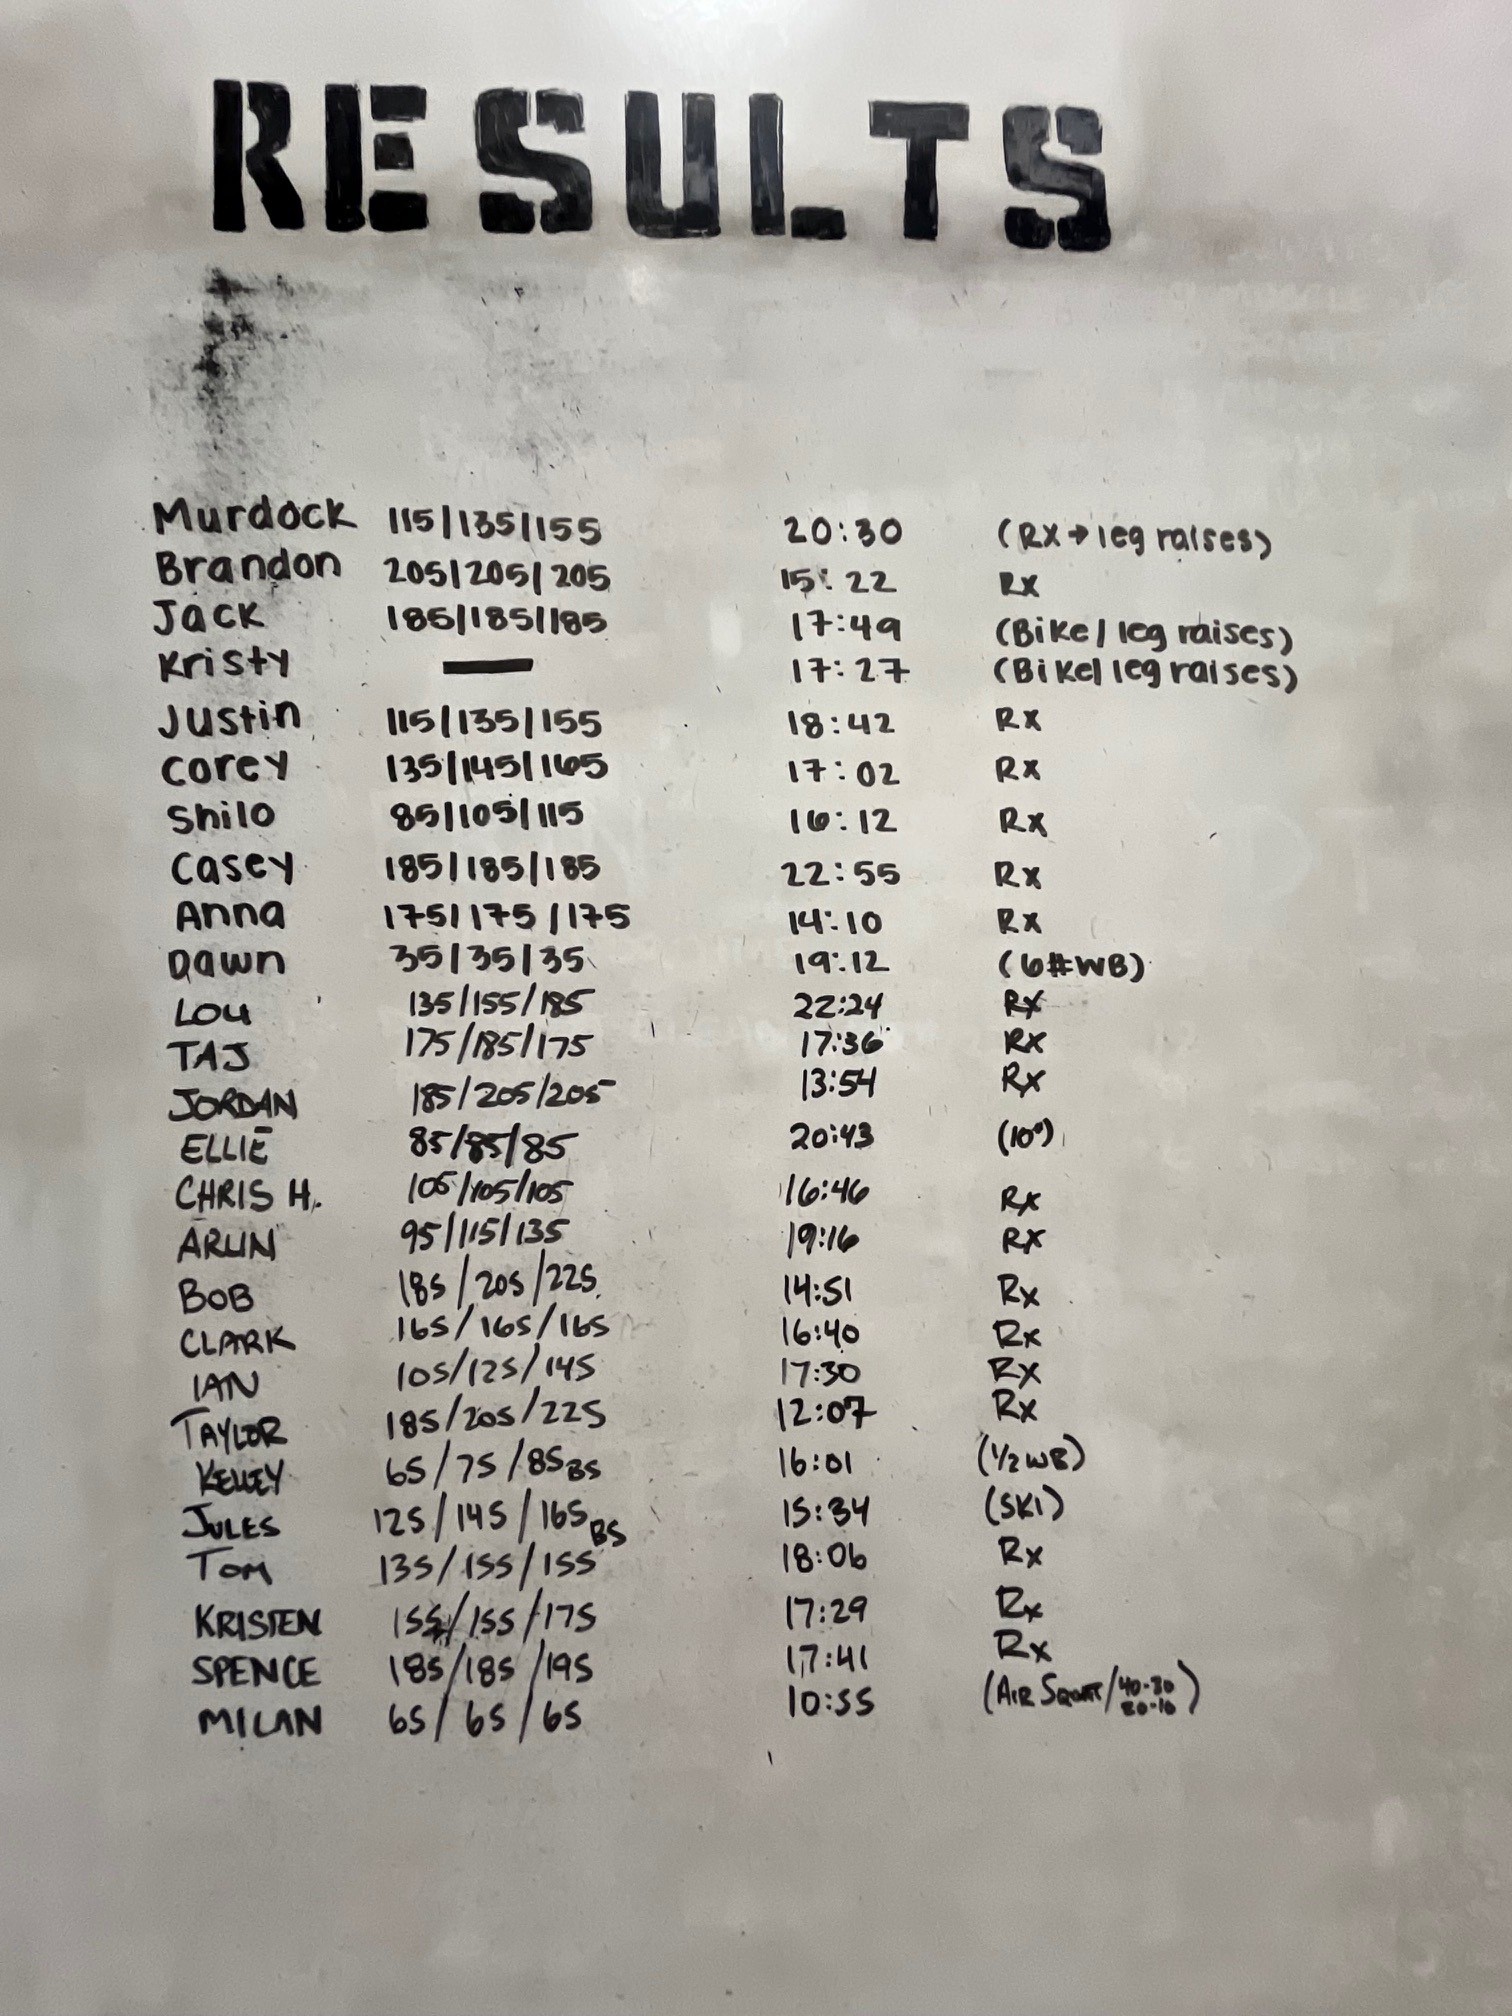 RESULTS
Murdock 115/135/155 20:30 (RX→leg raises)
Brandon 205/205/205 15:22 Rx
Jack 185/185/185 17:49 (Bike/leg raises)
Kristy — 17:27 (Bike/leg raises)
Justin 115/135/155 18:42 Rx
Corey 135/145/165 17:02 Rx
Shilo 85/105/115 16:12 Rx
Casey 185/185/185 22:55 Rx
Anna 175/175/175 14:10 Rx
Dawn 35/35/35 19:12 (6#WB)
LOU 135/155/185 22:24 Rx
TAJ 175/185/175 17:36 Rx
JORDAN 185/205/205 13:54 Rx
ELLIE 85/85/85 20:43 (10#)
CHRIS H. 105/105/105 16:46 Rx
ARUN 95/115/135 19:16 Rx
BOB 185/205/225 14:51 Rx
CLARK 165/165/165 16:40 Rx
IAN 105/125/145 17:30 Rx
TAYLOR 185/205/225 12:07 Rx
KELLEY 65/75/85 BS 16:01 (1/2 WB)
JULES 125/145/165 BS 15:34 (SKI)
Tom 135/155/155 18:06 Rx
KRISTEN 155/155/175 17:29 Rx
SPENCE 185/185/195 17:41 Rx
MILAN 65/65/65 10:55 (AIR SQUAT/40-30 20-10)